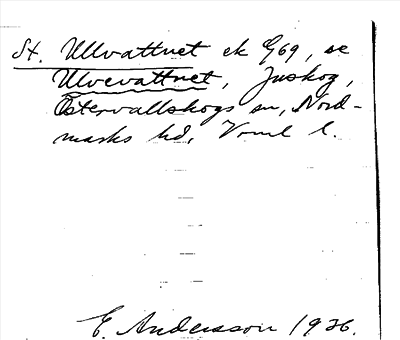 St. Ullvattnet ek G69, se
Ulvevattnet, Juskog,
Östervallskogs sn, Nord-
marks hd, Vrml l.
E. Andersson 1936.